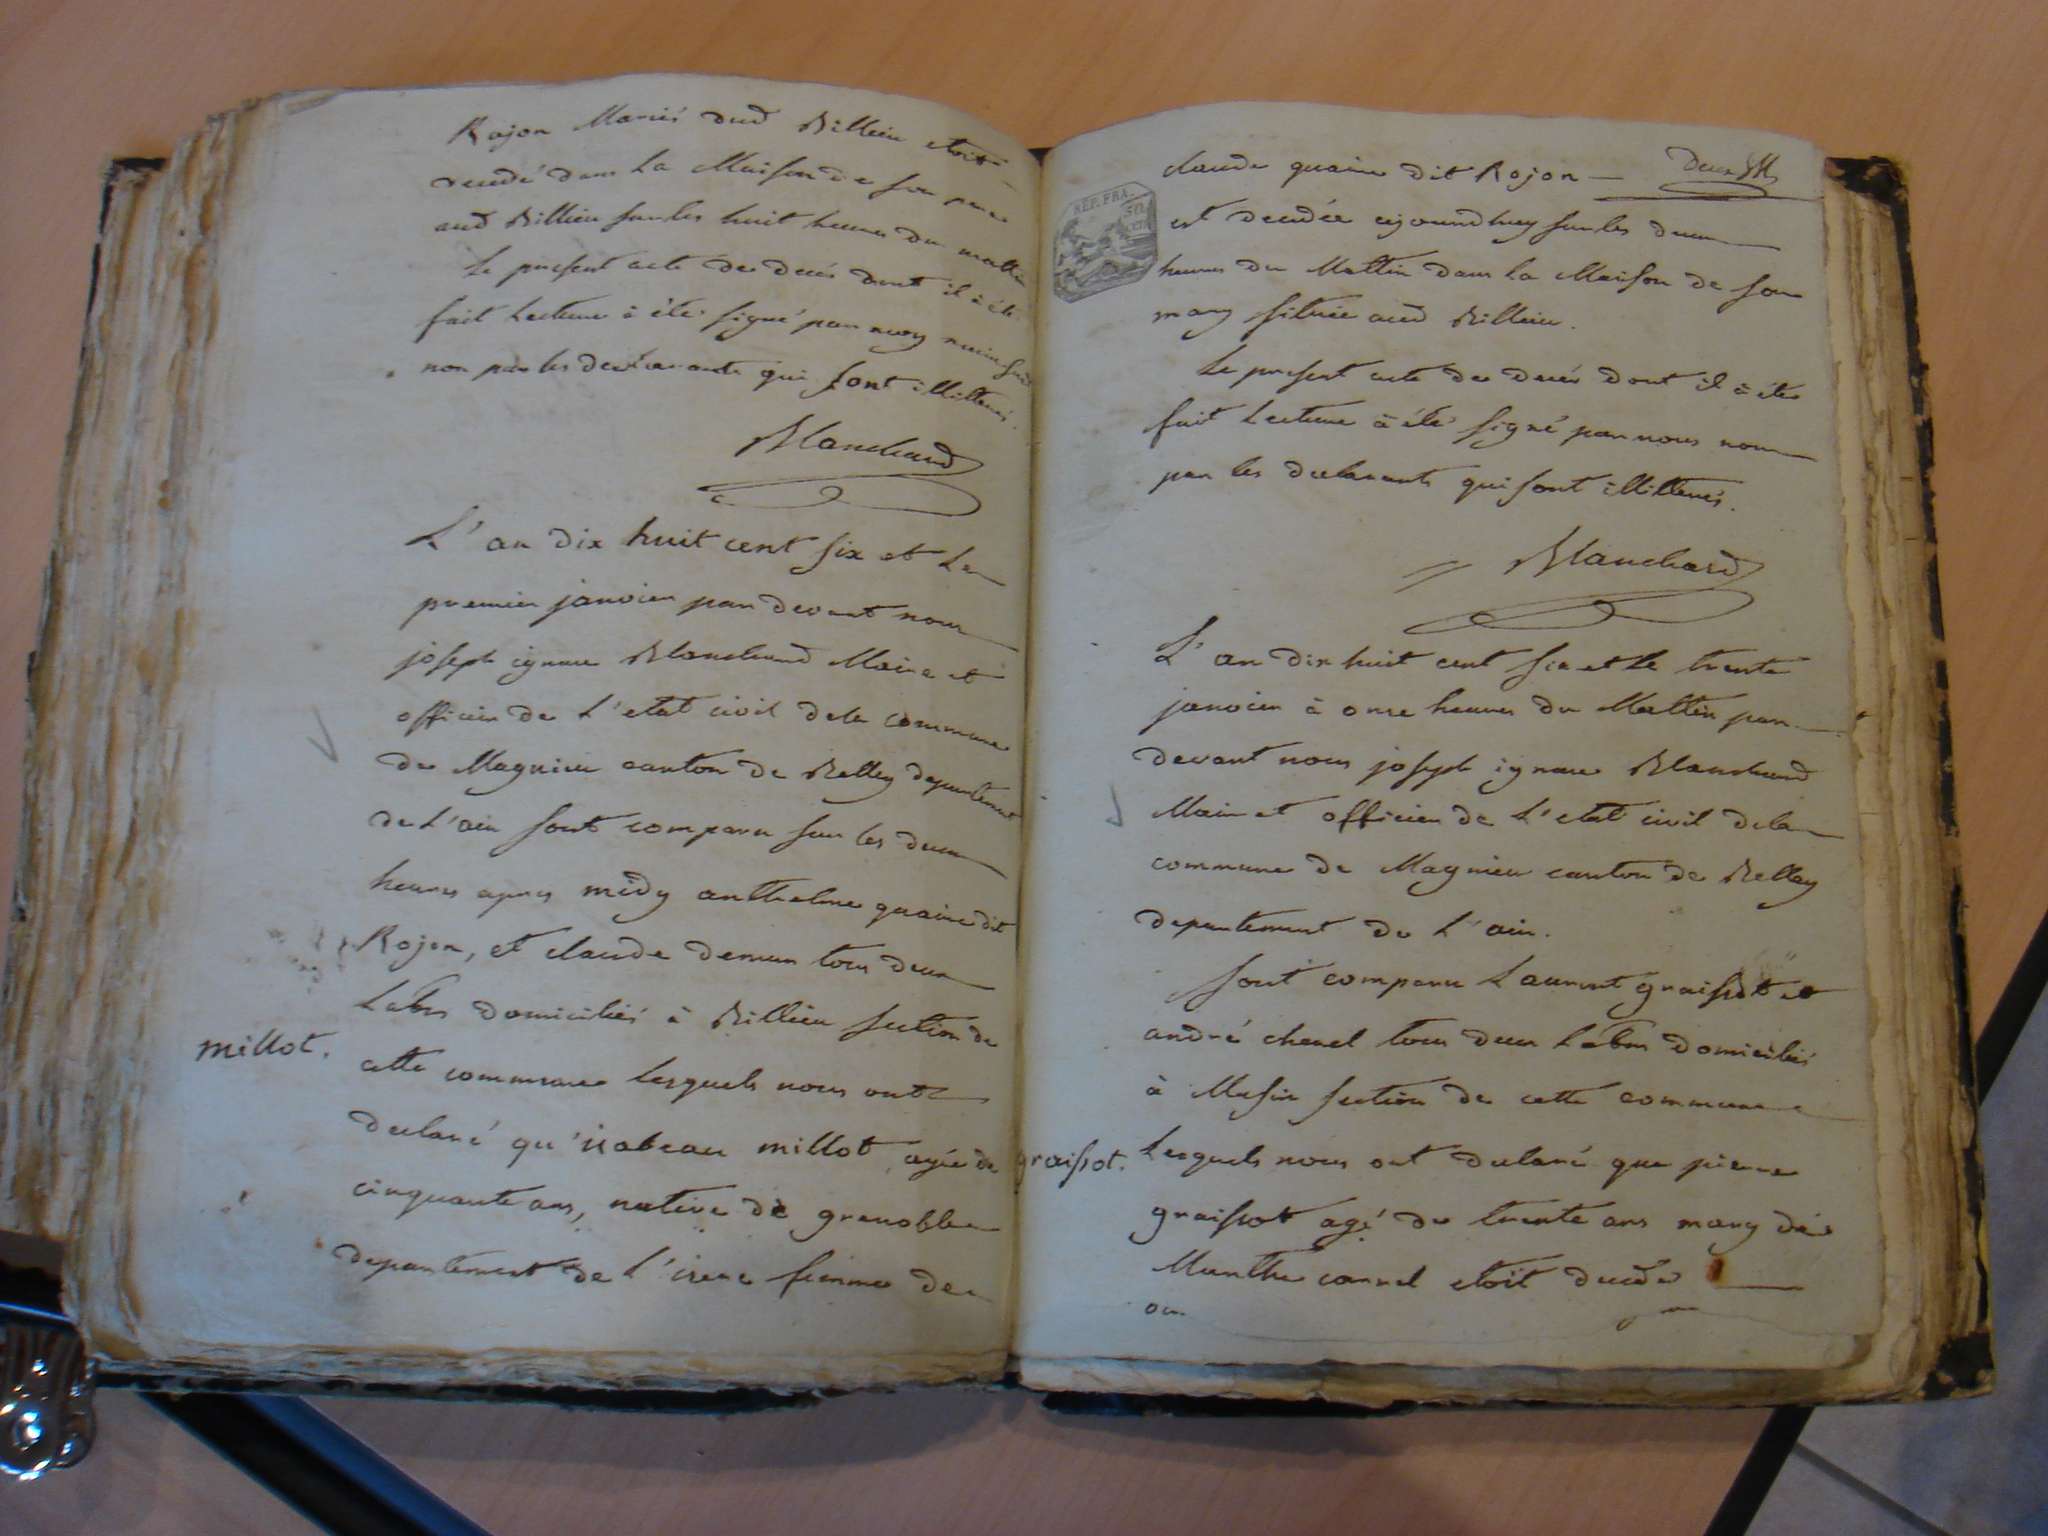 Rojon Mariés dud Billieu etoit
decedé dans La Maison de son pere
aud Billieu sur les huit heures du mattin
Le present acte de decés dont il à été
fait Lecture à été signé par nous
non par les declarants qui sont illitterés.
Blanchard
L'an dix huit cent six et Le
premier janvier par devant nous
joseph ignace Blanchard Maire et
officier de L'etat civil dela commune
de Magnieu canton de Belley departement
de L'ain sont comparu sur les deux
heures apres midy anthelme quaine dit
Rojon, et claude demun tous deux
Labrs domiciliés à Billieu section de
millot.
cette commune lesquels nous ont
declaré qu'isabeau millot agée de
cinquante ans, native de grenoble
departement de L'isere femme de
claude quaine dit Rojon —
REP. FRA.
50
CEN
est decedée ajourdhuy sur les deux
heures du Mattin dans La Maison de son
mary située aud Billieu.
Le present acte de decés dont il à été
fait Lecture à été signé par nous non
par les declarants qui sont illitterés.
Blanchard
L'an dix huit cent six et le trente
janvier à onze heures du Mattin par
devant nous joseph ignace Blanchard
Maire et officier de L'etat civil dela
commune de Magnieu canton de Belley
departement de L'ain.
sont comparu Laurent graissot et
andré chenel tous deux Labrs domiciliés
à Musin section de cette commune
graissot.
Lesquels nous ont declaré que pierre
graissot agé de trente ans mary de
Marthe connel etoit decedé